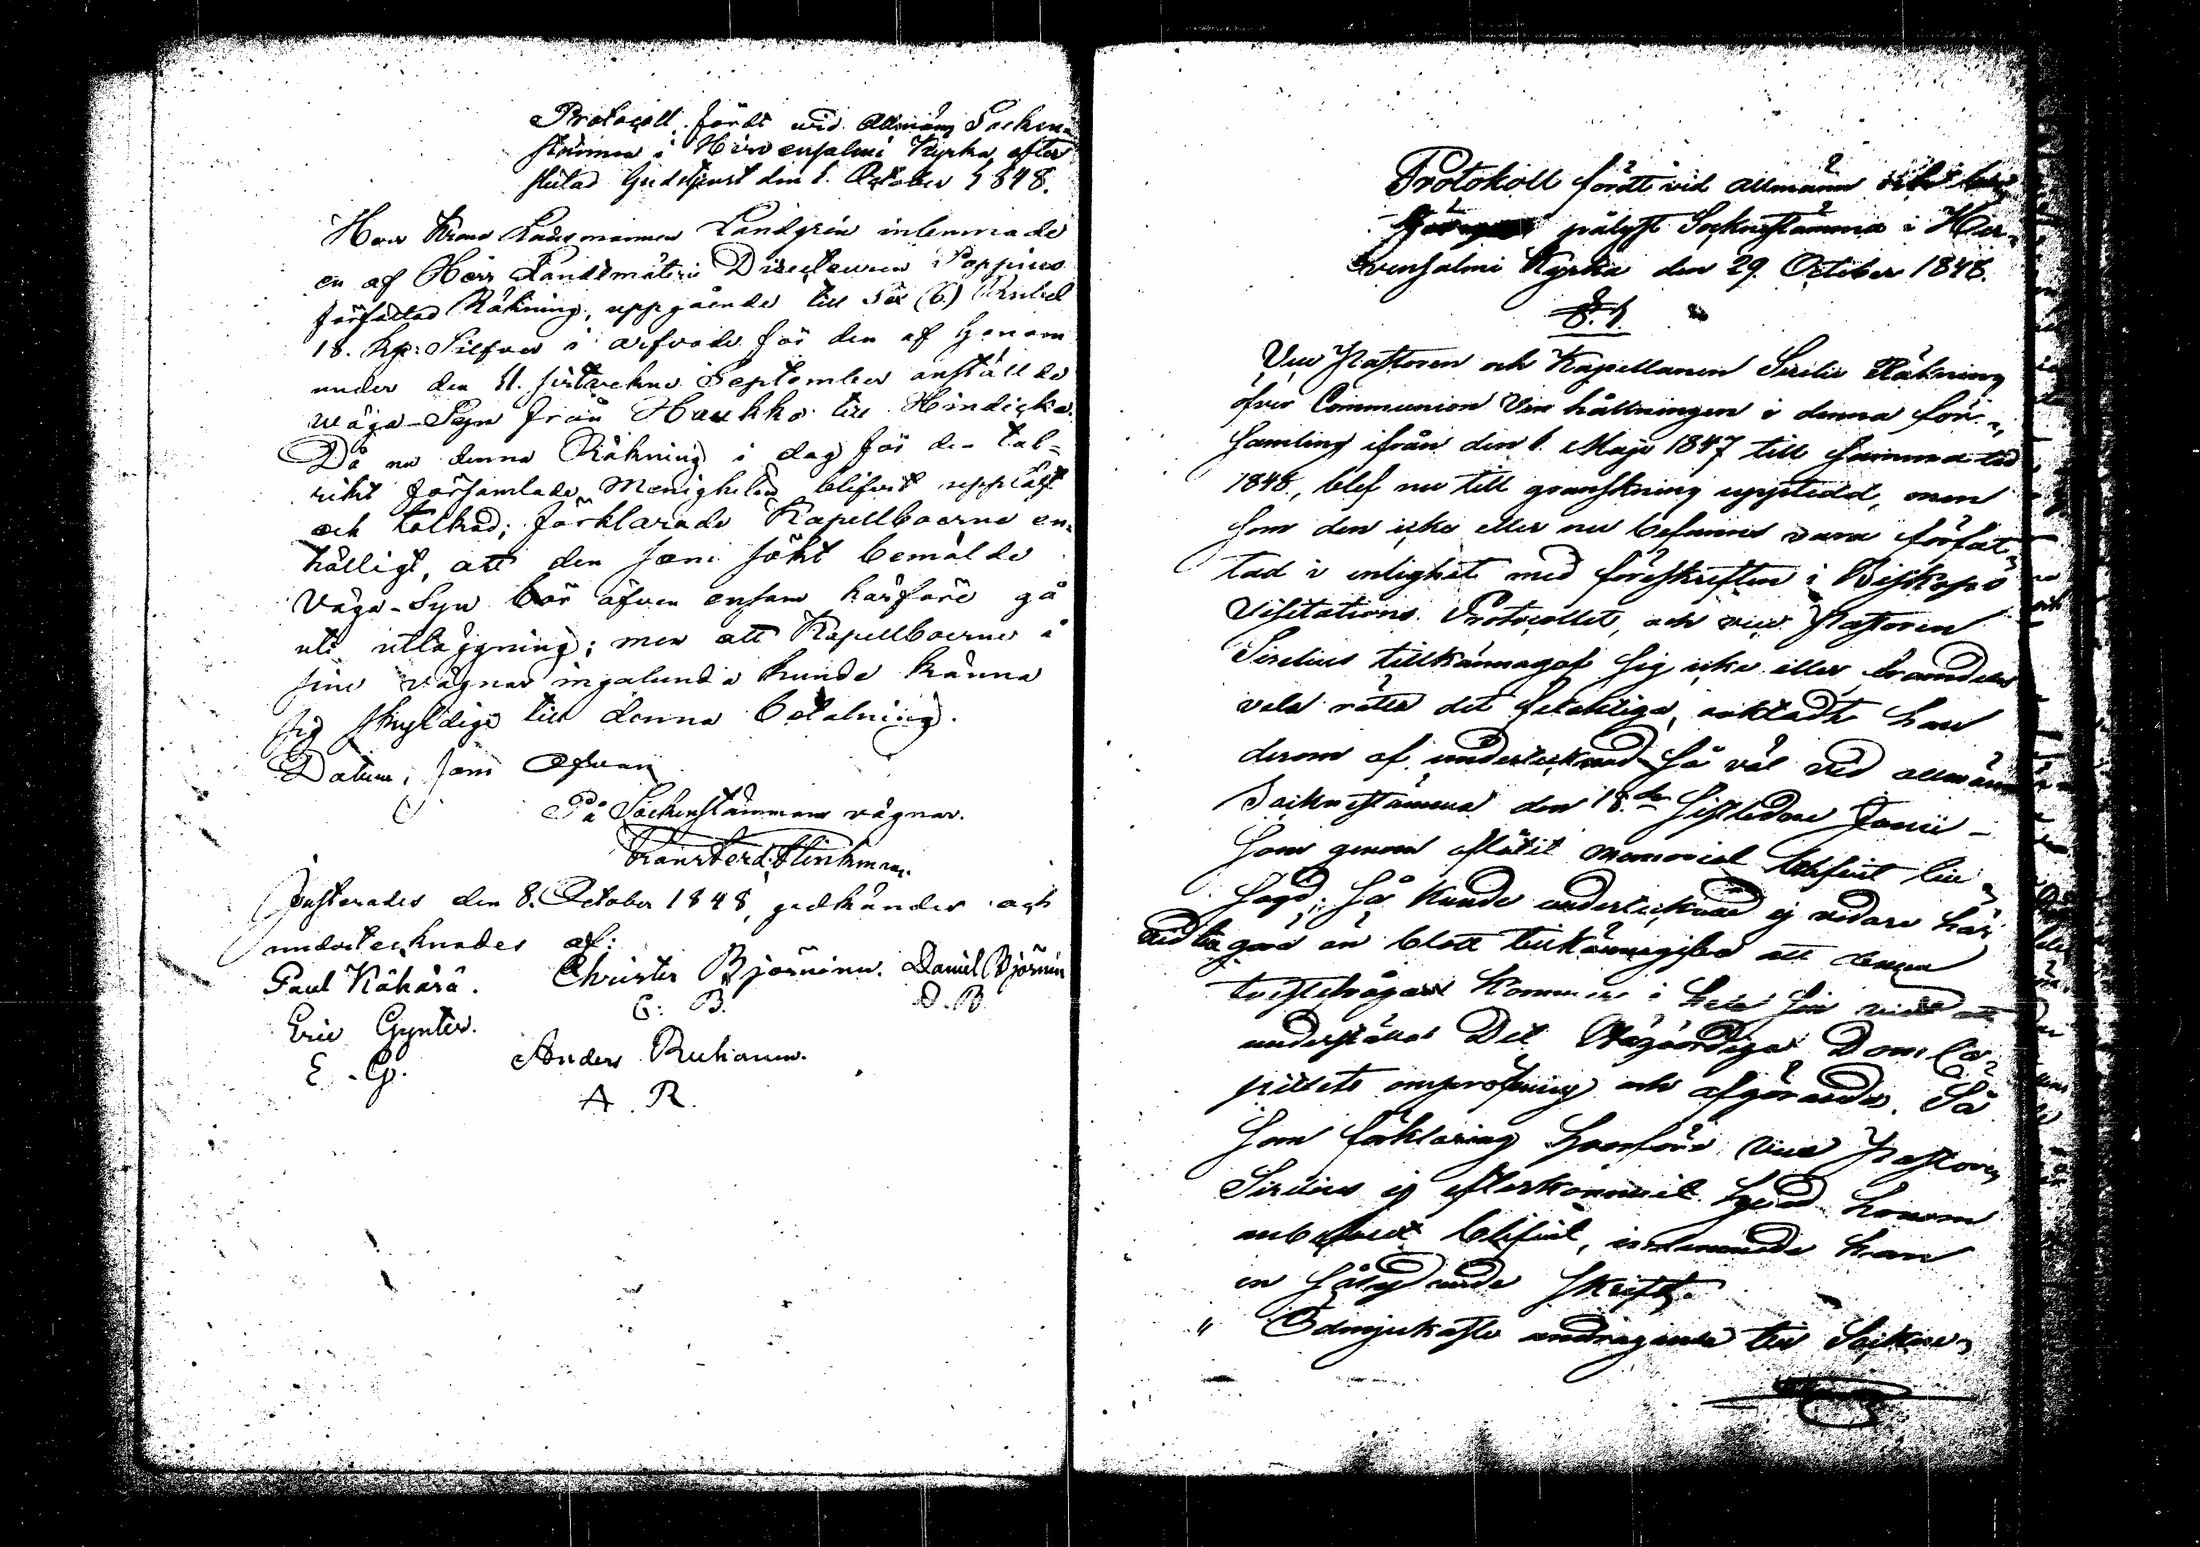 Protocoll, fördt wid Allmän Socken-
stämma i Hirvensalmi Kyrka, efter
slutad Gudstjenst den 1. October 1848.
Herr Krono Länsmannen Landgrén inlemnade
en af Herr Landtmäteri Directeuren Poppius
författad Räkning, uppgående till Sex (6) Rubel
18. kp: Silfver i arfvode för den af honom
under den 11. sistvekne September anställde
wäga-Syn från Haukko till Hindicka.
Då nu denna Räkning i dag för de- tal-
rikt församlade Menigheten blifvit uppläst
och tolkad; förklarade Kapellboerne en-
hälligt, att den som sökt bemälde
Väga-Syn bör äfven ensam härföre gå
uti utläggning; men att Kapellboerne å
sine vägnar ingalunda kunde känna
sig skyldige till denna betalning.
Datum, som Ofvan
På Sockenstämmans vägnar.
Frans Ferd: Flinkman
Justerades den 8. October 1848, godkändes och
undertecknades af:
Paul Kähärä. Christer Björninen. Daniel Björnin
C. B. D. B.
Eric Gynter.
E. G. Anders Ruhanen.
A. R.
Protokoll fördt vid allmän
pålyst Sockenstämma i Hir-
vensalmi Kyrka den 29. October 1848.
§. 1.
Vice Pastoren och Kapellanen Sirelii Räkning
öfver Communion Vin hållningen i denna för-
samling ifrån den 1. Maji 1847 till samma tid
1848, blef nu till granskning uppteedd, men
som den icke eller nu befanns vara förfat-
tad i enlighet med föreskriften i Biskops
Visitations Protocollet, och vice Pastoren
Sirelius tillkännagaf sig icke eller framdeles
vela rätta det felaktiga, oaktadt han
derom af undertecknad så väl vid allmän
Sockenstämma den 18.de sistledne Junii
som genom aflåtit memorial blifvit till-
sagd; så kunde undertecknad ej vidare här
vid tva göra än blott tillkännagifva att denna
tvistefråga kommer i hela sin vidd att
underställas Det Högvördiga Dom Ca-
pitlets ompröfning och afgörande. Så
som förklaring hvarföre Vice Pastoren
Sirelius ej efterkommit hvad honom
anbefaldt blifvit, inlemnade han
en så lydande skrift.
" Ödmjukaste andragande till Socken-